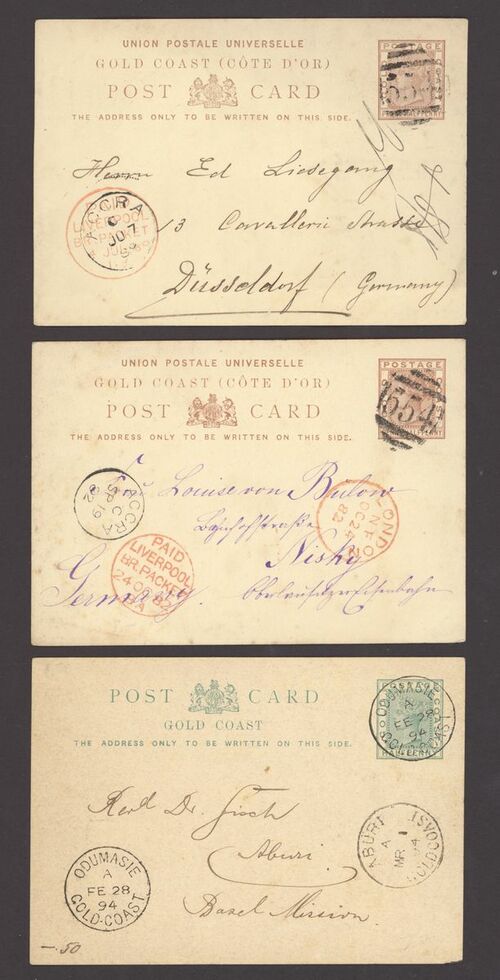 UNION POSTALE UNIVERSELLE
GOLD COAST (CÔTE D'OR)
POST CARD
THE ADDRESS ONLY TO BE WRITTEN ON THIS SIDE.
POSTAGE
554
Herrn Ed Liesegang
13 Cavallerie Strasse
Düsseldorf (Germany)
ACCRA
C
JU 7
LIVERPOOL
BR. PACKET
UNION POSTALE UNIVERSELLE
GOLD COAST (CÔTE D'OR)
POST CARD
THE ADDRESS ONLY TO BE WRITTEN ON THIS SIDE.
POSTAGE
554
Frau Louise von Bülow
Bahnhofstraße
Nisky
Germany. Oberlausitzer Eisenbahn
ACCRA
C
SP 19
82
PAID
LIVERPOOL
BR. PACKET
24 OC 82
LONDON
N.F.
OC 24
82
POST CARD
GOLD COAST
THE ADDRESS ONLY TO BE WRITTEN ON THIS SIDE.
HALFPENNY
ODUMASIE
A
FE 28
94
GOLD-COAST
Aburi
Basel Mission.
ODUMASIE
A
FE 28
94
GOLD-COAST
ABURI
A
MR 1
94
GOLDCOAST
—.50